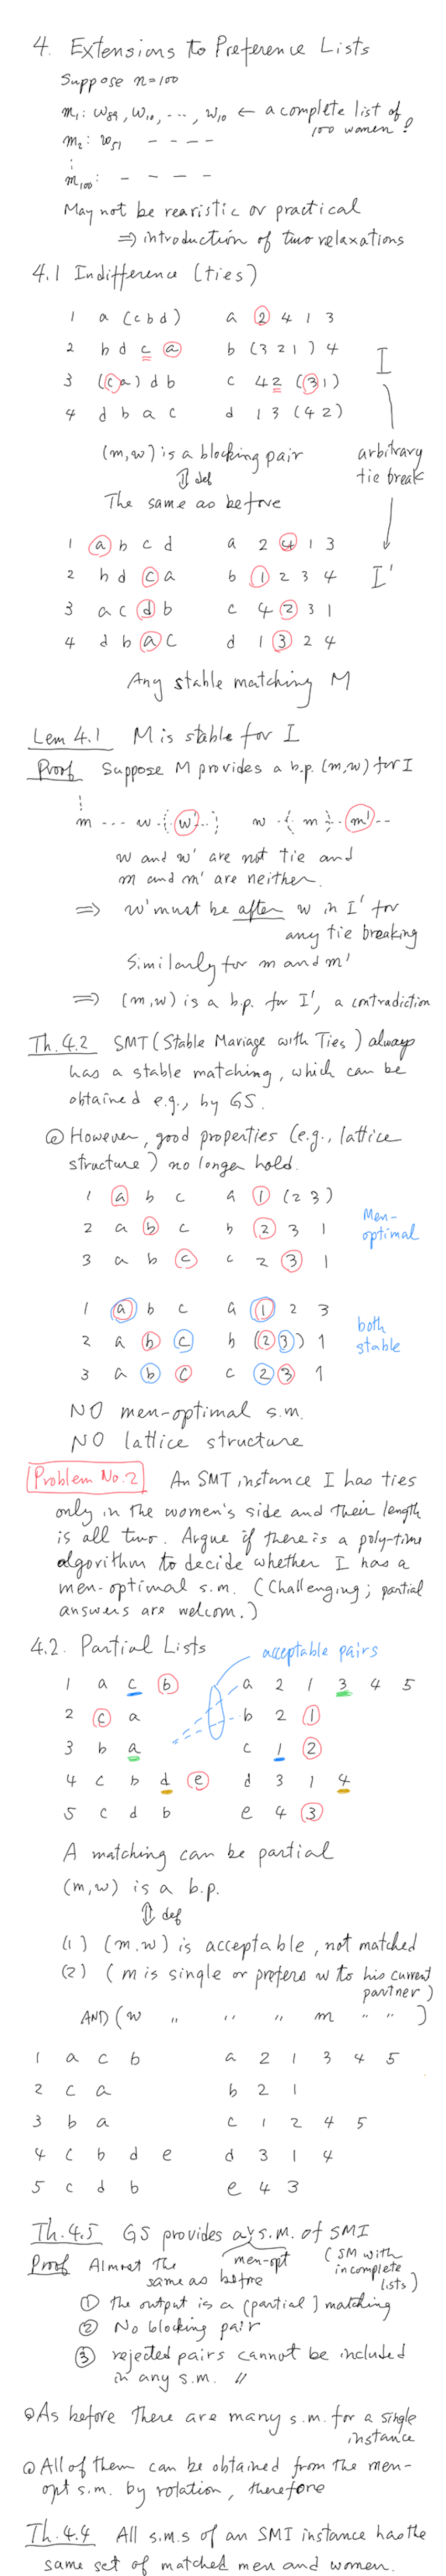 4. Extensions to Preference Lists
Suppose n=100
m₁: w₈₉, w₁₀, ---, w₁₀ ← a complete list of
100 women!
m₂: w₅₁ - - - -
⋮
m₁₀₀: - - - -
May not be rearistic or practical
⇒ introduction of two relaxations
4.1 Indifference (ties)
1 a (c b d) a 2 4 1 3
2 b d c a b (3 2 1) 4 I
3 (c a) d b c 4 2 (3 1)
4 d b a c d 1 3 (4 2)
(m,w) is a blocking pair
⇕ def
The same as before
arbitrary
tie break
1 a b c d a 2 4 1 3
2 b d c a b 1 2 3 4 I'
3 a c d b c 4 2 3 1
4 d b a c d 1 3 2 4
Any stable matching M
Lem 4.1 M is stable for I
Proof Suppose M provides a b.p. (m,w) for I
⋮
m --- w -{ w' } w -{ m }- m' --
w and w' are not tie and
m and m' are neither.
⇒ w' must be after w in I' for
any tie breaking
Similarly for m and m'
⇒ (m,w) is a b.p. for I', a contradiction
Th.4.2 SMT (Stable Mariage with Ties) always
has a stable matching, which can be
obtained e.g., by GS.
However, good properties (e.g., lattice
structure) no longer hold.
1 a b c a 1 (2 3)
2 a b c b 2 3 1
3 a b c c 2 3 1
Men-
optimal
1 a b c a 1 2 3
2 a b c b (2 3) 1
3 a b c c 2 3 1
both
stable
NO men-optimal s.m.
NO lattice structure
Problem No.2 An SMT instance I has ties
only in the women's side and their length
is all two. Argue if there is a poly-time
algorithm to decide whether I has a
men-optimal s.m. (Challenging; partial
answers are welcom.)
4.2. Partial Lists
acceptable pairs
1 a c b a 2 1 3 4 5
2 c a b 2 1
3 b a c 1 2
4 c b d e d 3 1 4
5 c d b e 4 3
A matching can be partial
(m,w) is a b.p.
⇕ def
(1) (m,w) is acceptable, not matched
(2) (m is single or prefers w to his current
partner)
AND (w 〃 〃 〃 m 〃 〃 )
1 a c b a 2 1 3 4 5
2 c a b 2 1
3 b a c 1 2 4 5
4 c b d e d 3 1 4
5 c d b e 4 3
Th.4.5 GS provides a s.m. of SMI
men-opt
(SM with
incomplete
lists)
Proof Almost the
same as before
① the output is a (partial) matching
② No blocking pair
③ rejected pairs cannot be included
in any s.m. //
As before there are many s.m. for a single
instance
All of them can be obtained from the men-
opt s.m. by rotation, therefore
Th.4.4 All s.m.s of an SMI instance has the
same set of matched men and women.